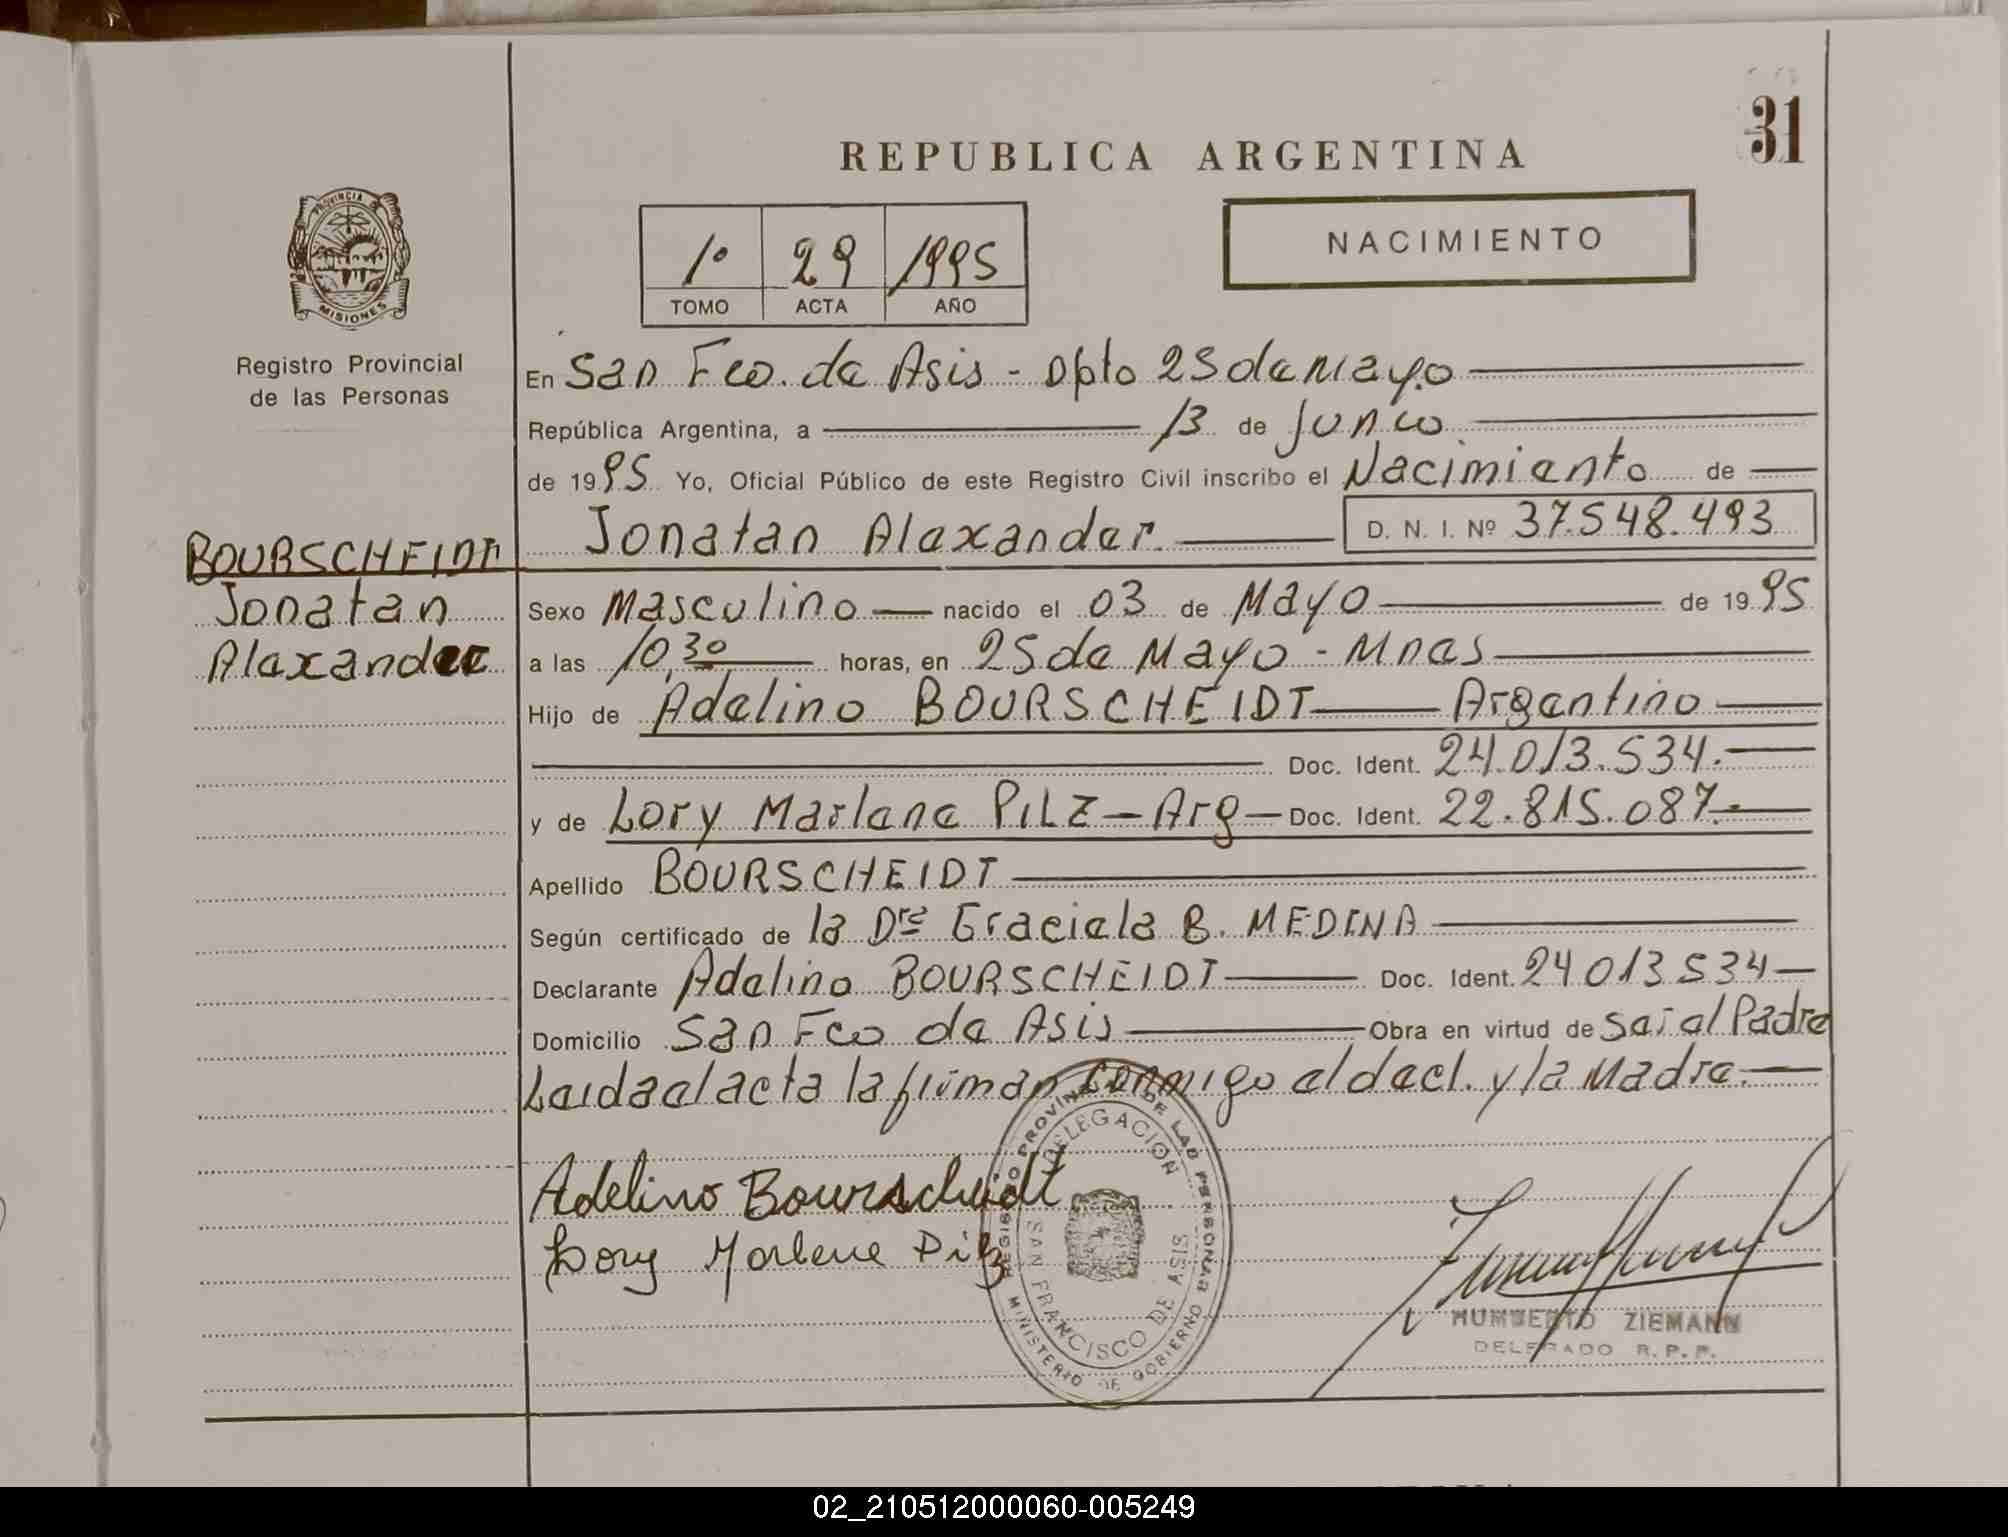 31
REPUBLICA ARGENTINA
NACIMIENTO
1º 29 1995
TOMO ACTA AÑO
PROVINCIA DE
MISIONES
Registro Provincial
de las Personas
BOURSCHEIDT
Jonatan
Alexander
En San Fco. de Asis - Dpto 25 de Mayo
República Argentina, a 13 de Junio
de 1995 Yo, Oficial Público de este Registro Civil inscribo el Nacimiento de
Jonatan Alexander D. N. I. Nº 37.548.493
Sexo Masculino nacido el 03 de Mayo de 1995
a las 10,30 horas, en 25 de Mayo - Mnes
Hijo de Adelino BOURSCHEIDT Argentino
Doc. Ident. 24.013.534.
y de Lory Marlene PILZ - Arg - Doc. Ident. 22.815.087.-
Apellido BOURSCHEIDT
Según certificado de la Dra Graciela B. MEDINA
Declarante Adelino BOURSCHEIDT Doc. Ident. 24 013 534
Domicilio San Fco de Asis Obra en virtud de Ser el Padre
Leida el acta la firman conmigo el decl. y la Madre.
Adelino Bourscheidt
Lory Marlene Pilz
REGISTRO PROVINCIAL DE LAS PERSONAS
MINISTERIO DE GOBIERNO
DELEGACION
SAN FRANCISCO DE ASIS
HUMBERTO ZIEMANN
DELEGADO R. P. P.
02_210512000060-005249